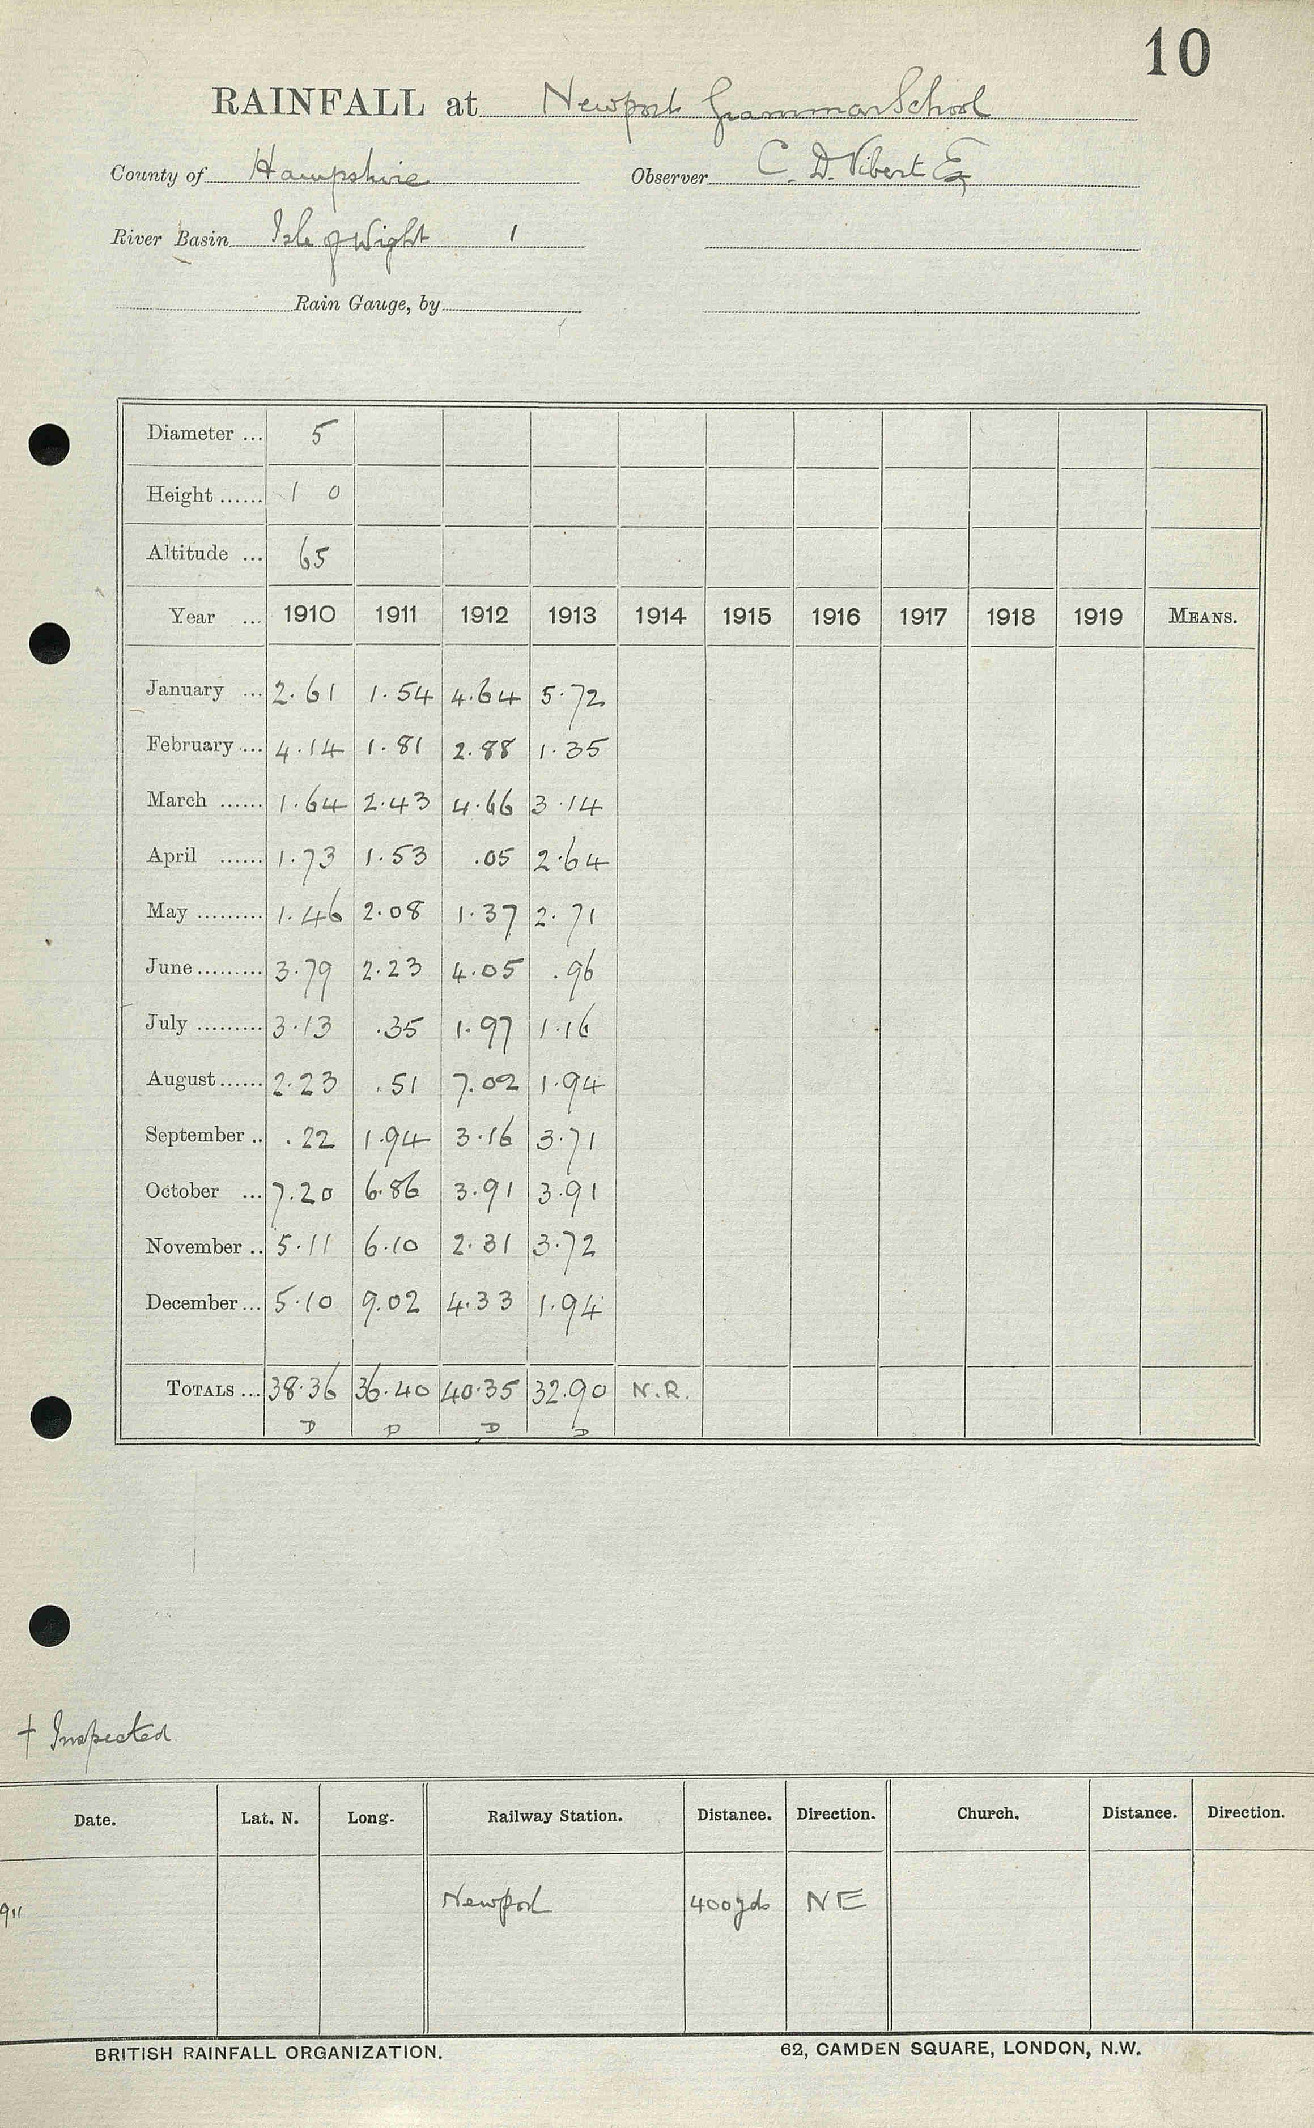 10
RAINFALL at Newport Grammar School
County of Hampshire Observer C. D. Vibert Esq
River Basin Isle of Wight 1
Rain Gauge, by
Diameter ... 5
Height ...... 1 0
Altitude ... 65
Year ... 1910 1911 1912 1913 1914 1915 1916 1917 1918 1919 MEANS.
January ... 2.61 1.54 4.64 5.72
February ... 4.14 1.81 2.88 1.35
March ...... 1.64 2.43 4.66 3.14
April ...... 1.73 1.53 .05 2.64
May ......... 1.46 2.08 1.37 2.71
June ......... 3.79 2.23 4.05 .96
July ......... 3.13 .35 1.97 1.16
August ...... 2.23 .51 7.02 1.94
September .. .22 1.94 3.16 3.71
October ... 7.20 6.86 3.91 3.91
November .. 5.11 6.10 2.31 3.72
December ... 5.10 9.02 4.33 1.94
TOTALS ... 38.36 36.40 40.35 32.90 N.R.
D D D D
† Inspected
Date. Lat. N. Long. Railway Station. Distance. Direction. Church. Distance. Direction.
911 Newport 400 yds NE
BRITISH RAINFALL ORGANIZATION. 62, CAMDEN SQUARE, LONDON, N.W.